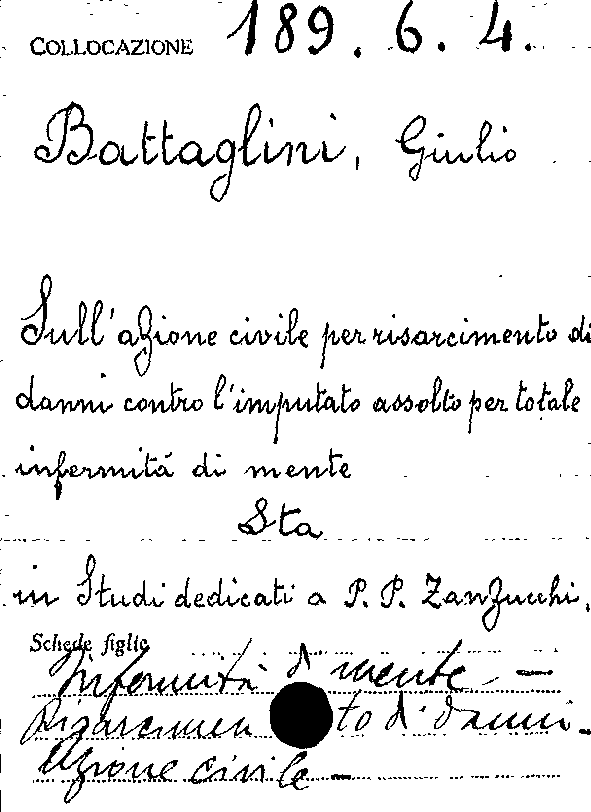 COLLOCAZIONE 189. 6. 4.
Battaglini, Giulio
Sull'azione civile per risarcimento di
danni contro l'imputato assolto per totale
infermitá di mente
Sta
in Studi dedicati a P. P. Zanzucchi,
Schede figlie
Infermità di mente -
Risarcimento d' danni -
Azione civile -